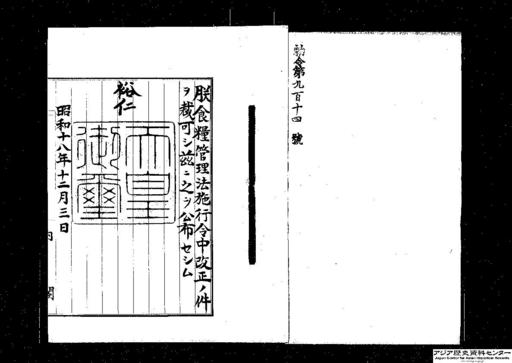 勅令第九百十四號
朕食糧管理法施行令中改正ノ件
ヲ裁可シ茲ニ之ヲ公布セシム
裕仁
天皇御璽
昭和十八年十二月三日
内閣
アジア歴史資料センター
Japan Center for Asian Historical Records